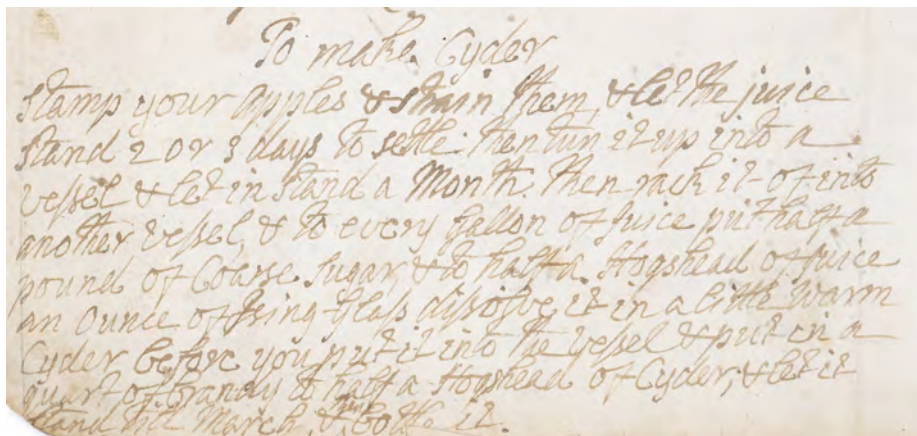 To make Cyder
Stamp your apples & strain them, & let the juice
stand 2 or 3 days to settle. then tun it up into a
vessel & let in stand a Month. then rack it of into
another vessel, & to every gallon of juice put half a
pound of Coarse Sugar, & to half a Hogshead of juice
an Ounce of Ising Glass dissolve it in a little Warm
Cyder before you put it into the vessel & put in a
quart of brandy to half a Hogshead of Cyder, & let it
stand till March, then bottle it.